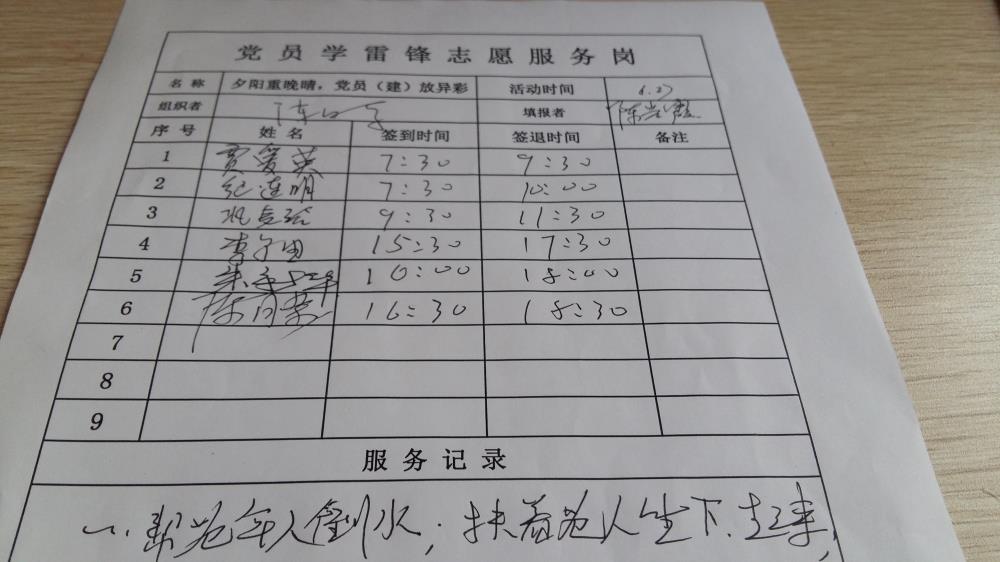 党员学雷锋志愿服务岗
名称 夕阳重晚晴，党员（建）放异彩 活动时间 6.27
组织者 填报者
序号 姓名 签到时间 签退时间 备注
1 贾爱英 7:30 9:30
2 纪连明 7:30 10:00
3 9:30 11:30
4 15:30 17:30
5 16:00 18:00
6 16:30 18:30
7
8
9
服务记录
一、帮老年人倒水，扶着老人坐下、起来，